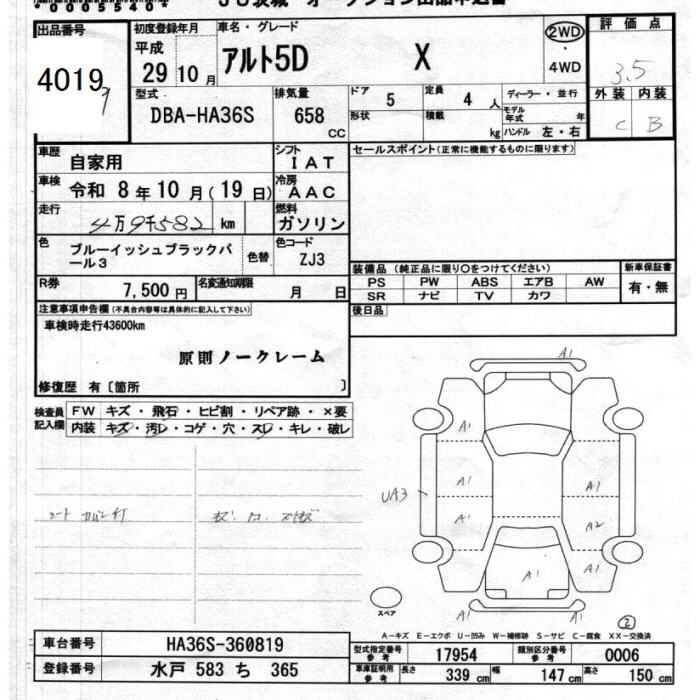 *0005540*
JU茨城 オークション出品申込書
出品番号
4019
初度登録年月
平成
29 10 月
車名・グレード
アルト5D X
2WD
・
4WD
評価点
3.5
型式
DBA-HA36S
排気量
658
CC
ドア
5
定員
4 人
ディーラー・並行
形状
積載
kg
モデル年式
年
ハンドル 左・右
外装 内装
C B
車歴
自家用
シフト
IAT
車検
令和 8 年 10 月 ( 19 日)
冷房
AAC
走行
4万9千582 km
燃料
ガソリン
色
ブルーイッシュブラックパ
ール3
色替
色コード
ZJ3
R券
7,500 円
名変通知期限
月 日
セールスポイント(正常に機能するものに限ります)
装備品 (純正品に限り○をつけてください)
PS PW ABS エアB AW
SR ナビ TV カワ
新車保証書
有・無
後日品
注意事項申告欄(不具合内容等は具体的に記入して下さい)
車検時走行43600km
原則ノークレーム
修復歴 有〔箇所 〕
検査員
記入欄
FW キズ・飛石・ヒビ割・リペア跡・×要
内装 キズ・汚レ・コゲ・穴・スレ・キレ・破レ
A1
A1
A1
A1
UA3
A1
A1
A2
A1
A1
A1
スペア
②
A-キズ E-エクボ U-凹み W-補修跡 S-サビ C-腐食 XX-交換済
車台番号
HA36S-360819
登録番号
水戸 583 ち 365
型式指定番号
参考
17954
類別区分番号
参考
0006
車庫証明用
参考
長さ
339 cm
幅
147 cm
高さ
150 cm